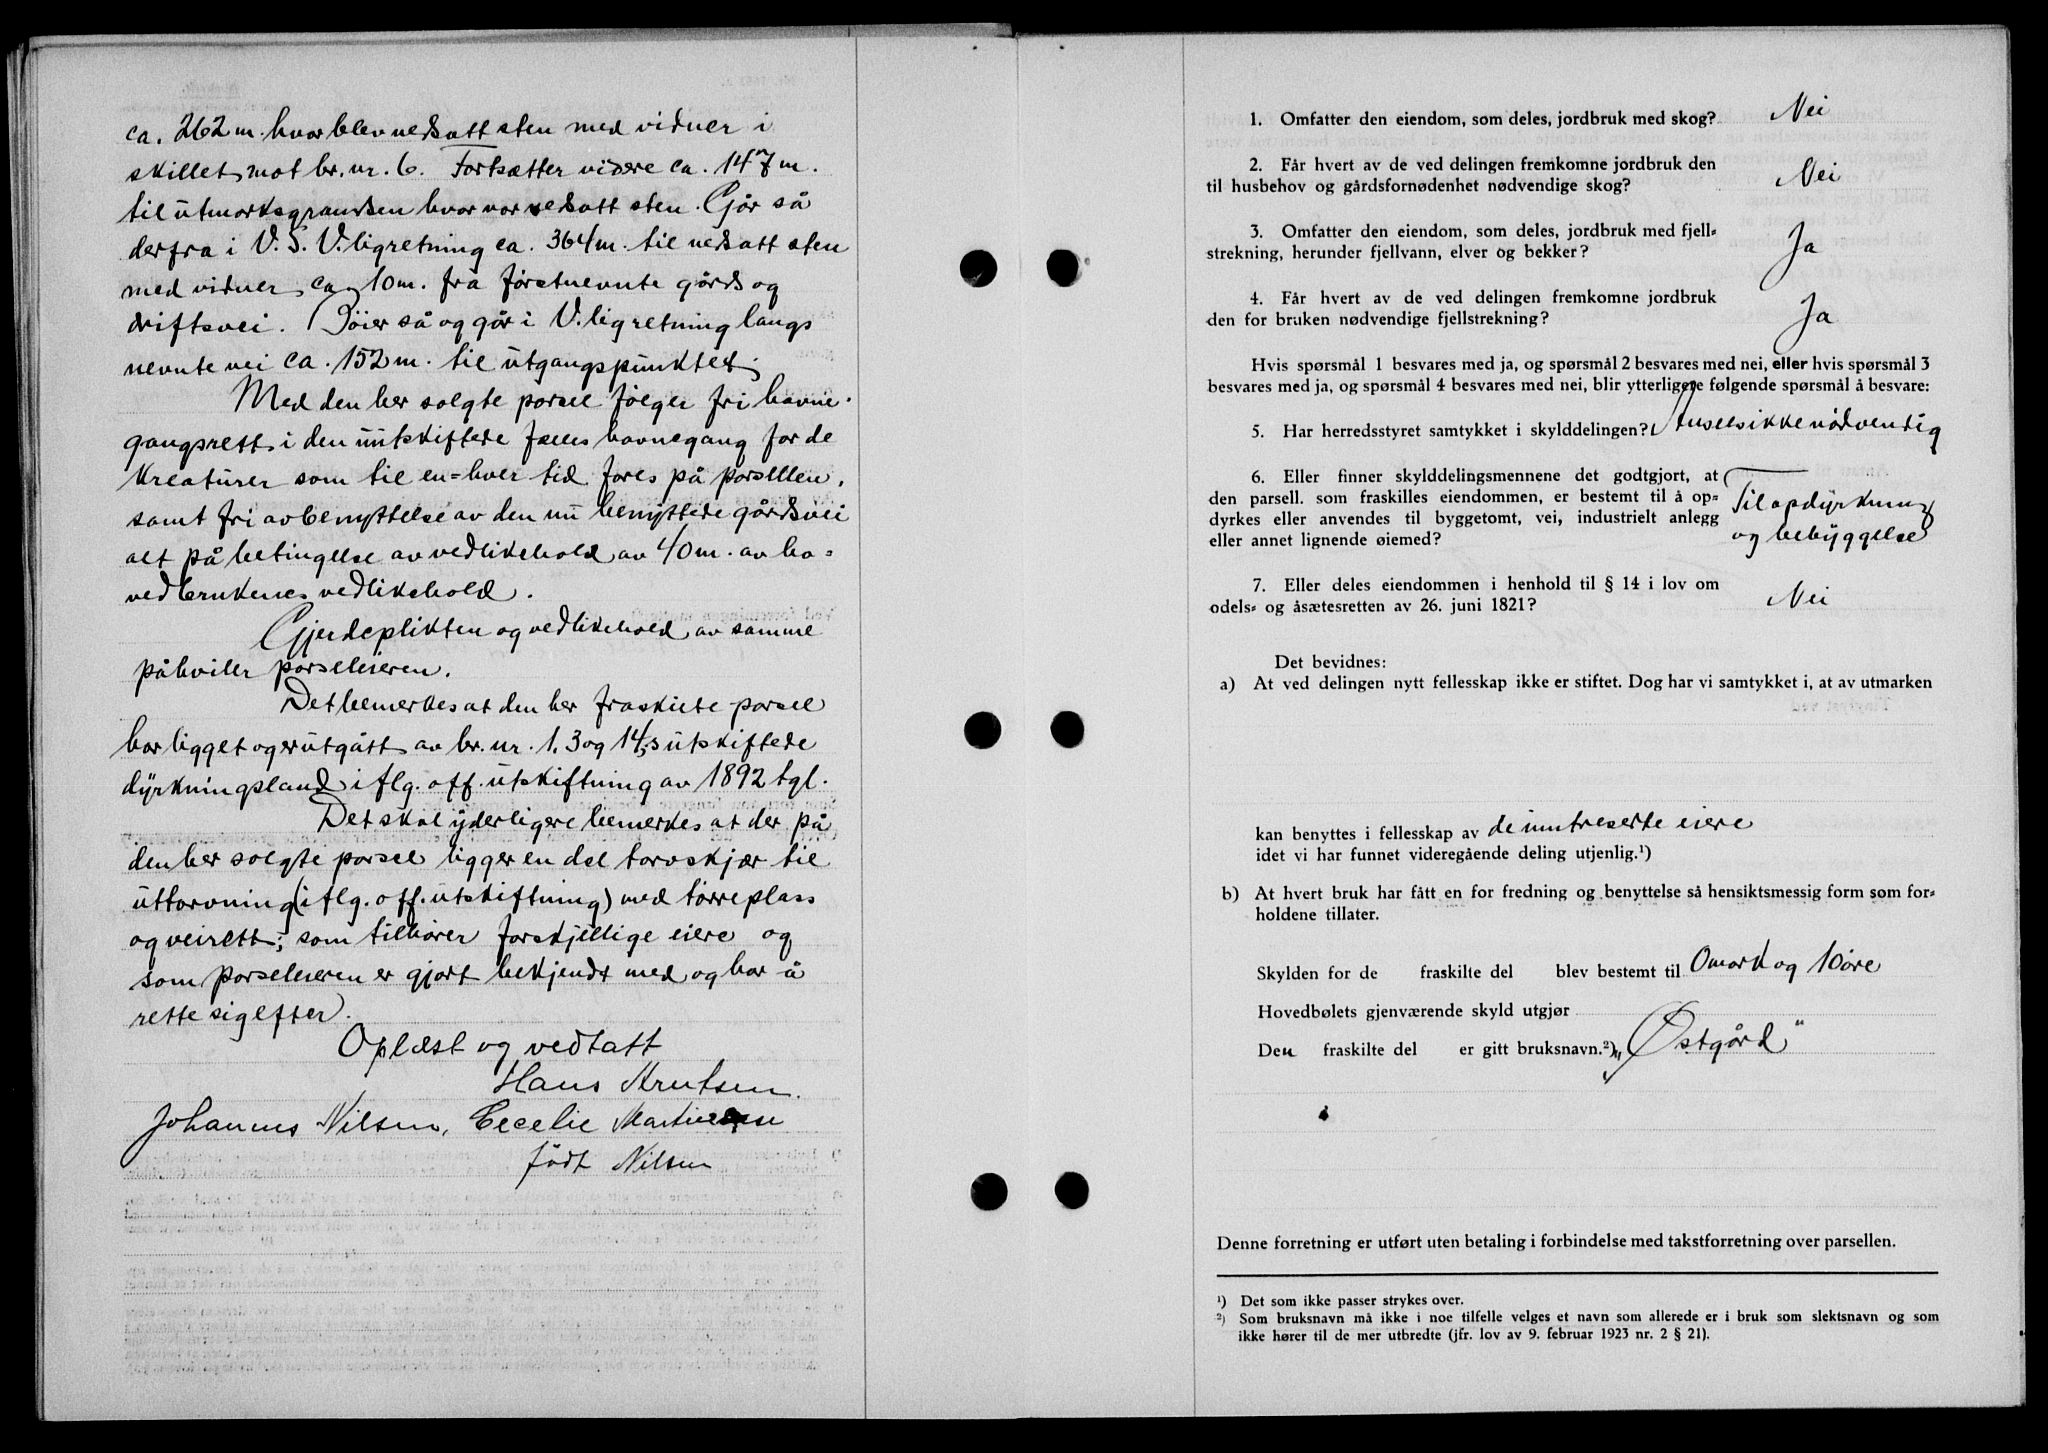 ca. 262 m. hvor blev nedsatt sten med vidner i
skillet mot br. nr. 6. Fortsætter videre ca. 147 m.
til utmarksgrændsen hvor var nedsatt sten. Går så
derfra i V. S. V. lig retning ca. 364 m. til nedsatt sten
med vidner, ca 10 m. fra førstnevnte gårds og
driftsvei. Bøier så og går i V. lig retning langs
nevnte vei ca. 152 m. til utgangspunktet.
Med den her solgte parsel følger fri havne-
gangsrett i den uutskiftede fælles havnegang for de
kreaturer som til en=hver tid fores på parsellen,
samt fri avbenyttelse av den nu benyttede gårdsvei
alt på betingelse av vedlikehold av 40 m. av ho=
vedbrukenes vedlikehold.
Gjerdeplikten og vedlikehold av samme
påhviler parseleieren.
Det bemerkes at den her fraskilte parsel
har ligget og er utgått av br. nr. 1, 3 og 14,s utskiftede
dyrkningsland i flg. off. utskiftning av 1892 tgl.
Det skal yderligere bemerkes at der på
den her solgte parsel ligger en del torvskjær til
uttorvning (i flg. off. utskiftning) med tørreplass
og veirett; som tilhører forskjellige eiere og
som parseleieren er gjort bekjendt med og har å
rette sig efter.
Oplæst og vedtatt
Hans Knutsen.
Johannes Nilsen, Cecelie Martinsen
født Nilsen
1. Omfatter den eiendom, som deles, jordbruk med skog? Nei
2. Får hvert av de ved delingen fremkomne jordbruk den
til husbehov og gårdsfornødenhet nødvendige skog? Nei
3. Omfatter den eiendom, som deles, jordbruk med fjell=
strekning, herunder fjellvann, elver og bekker? Ja
4. Får hvert av de ved delingen fremkomne jordbruk
den for bruken nødvendige fjellstrekning? Ja
Hvis spørsmål 1 besvares med ja, og spørsmål 2 besvares med nei, eller hvis spørsmål 3
besvares med ja, og spørsmål 4 besvares med nei, blir ytterligere følgende spørsmål å besvare:
5. Har herredsstyret samtykket i skylddelingen? Ansees ikke nødvendig
6. Eller finner skylddelingsmennene det godtgjort, at
den parsell. som fraskilles eiendommen, er bestemt til å op=
dyrkes eller anvendes til byggetomt, vei, industrielt anlegg Til opdyrkning
eller annet lignende øiemed? og bebyggelse
7. Eller deles eiendommen i henhold til § 14 i lov om
odels= og åsætesretten av 26. juni 1821? Nei
Det bevidnes:
a) At ved delingen nytt fellesskap ikke er stiftet. Dog har vi samtykket i, at av utmarken
kan benyttes i fellesskap av de inntreserte eiere
idet vi har funnet videregående deling utjenlig.¹)
b) At hvert bruk har fått en for fredning og benyttelse så hensiktsmessig form som for=
holdene tillater.
Skylden for de fraskilte del blev bestemt til 0 mark og 10 øre
Hovedbølets gjenværende skyld utgjør
Den fraskilte del er gitt bruksnavn.²) „Østgård"
Denne forretning er utført uten betaling i forbindelse med takstforretning over parsellen.
¹) Det som ikke passer strykes over.
²) Som bruksnavn må ikke i noe tilfelle velges et navn som allerede er i bruk som slektsnavn og som
ikke hører til de mer utbredte (jfr. lov av 9. februar 1923 nr. 2 § 21).